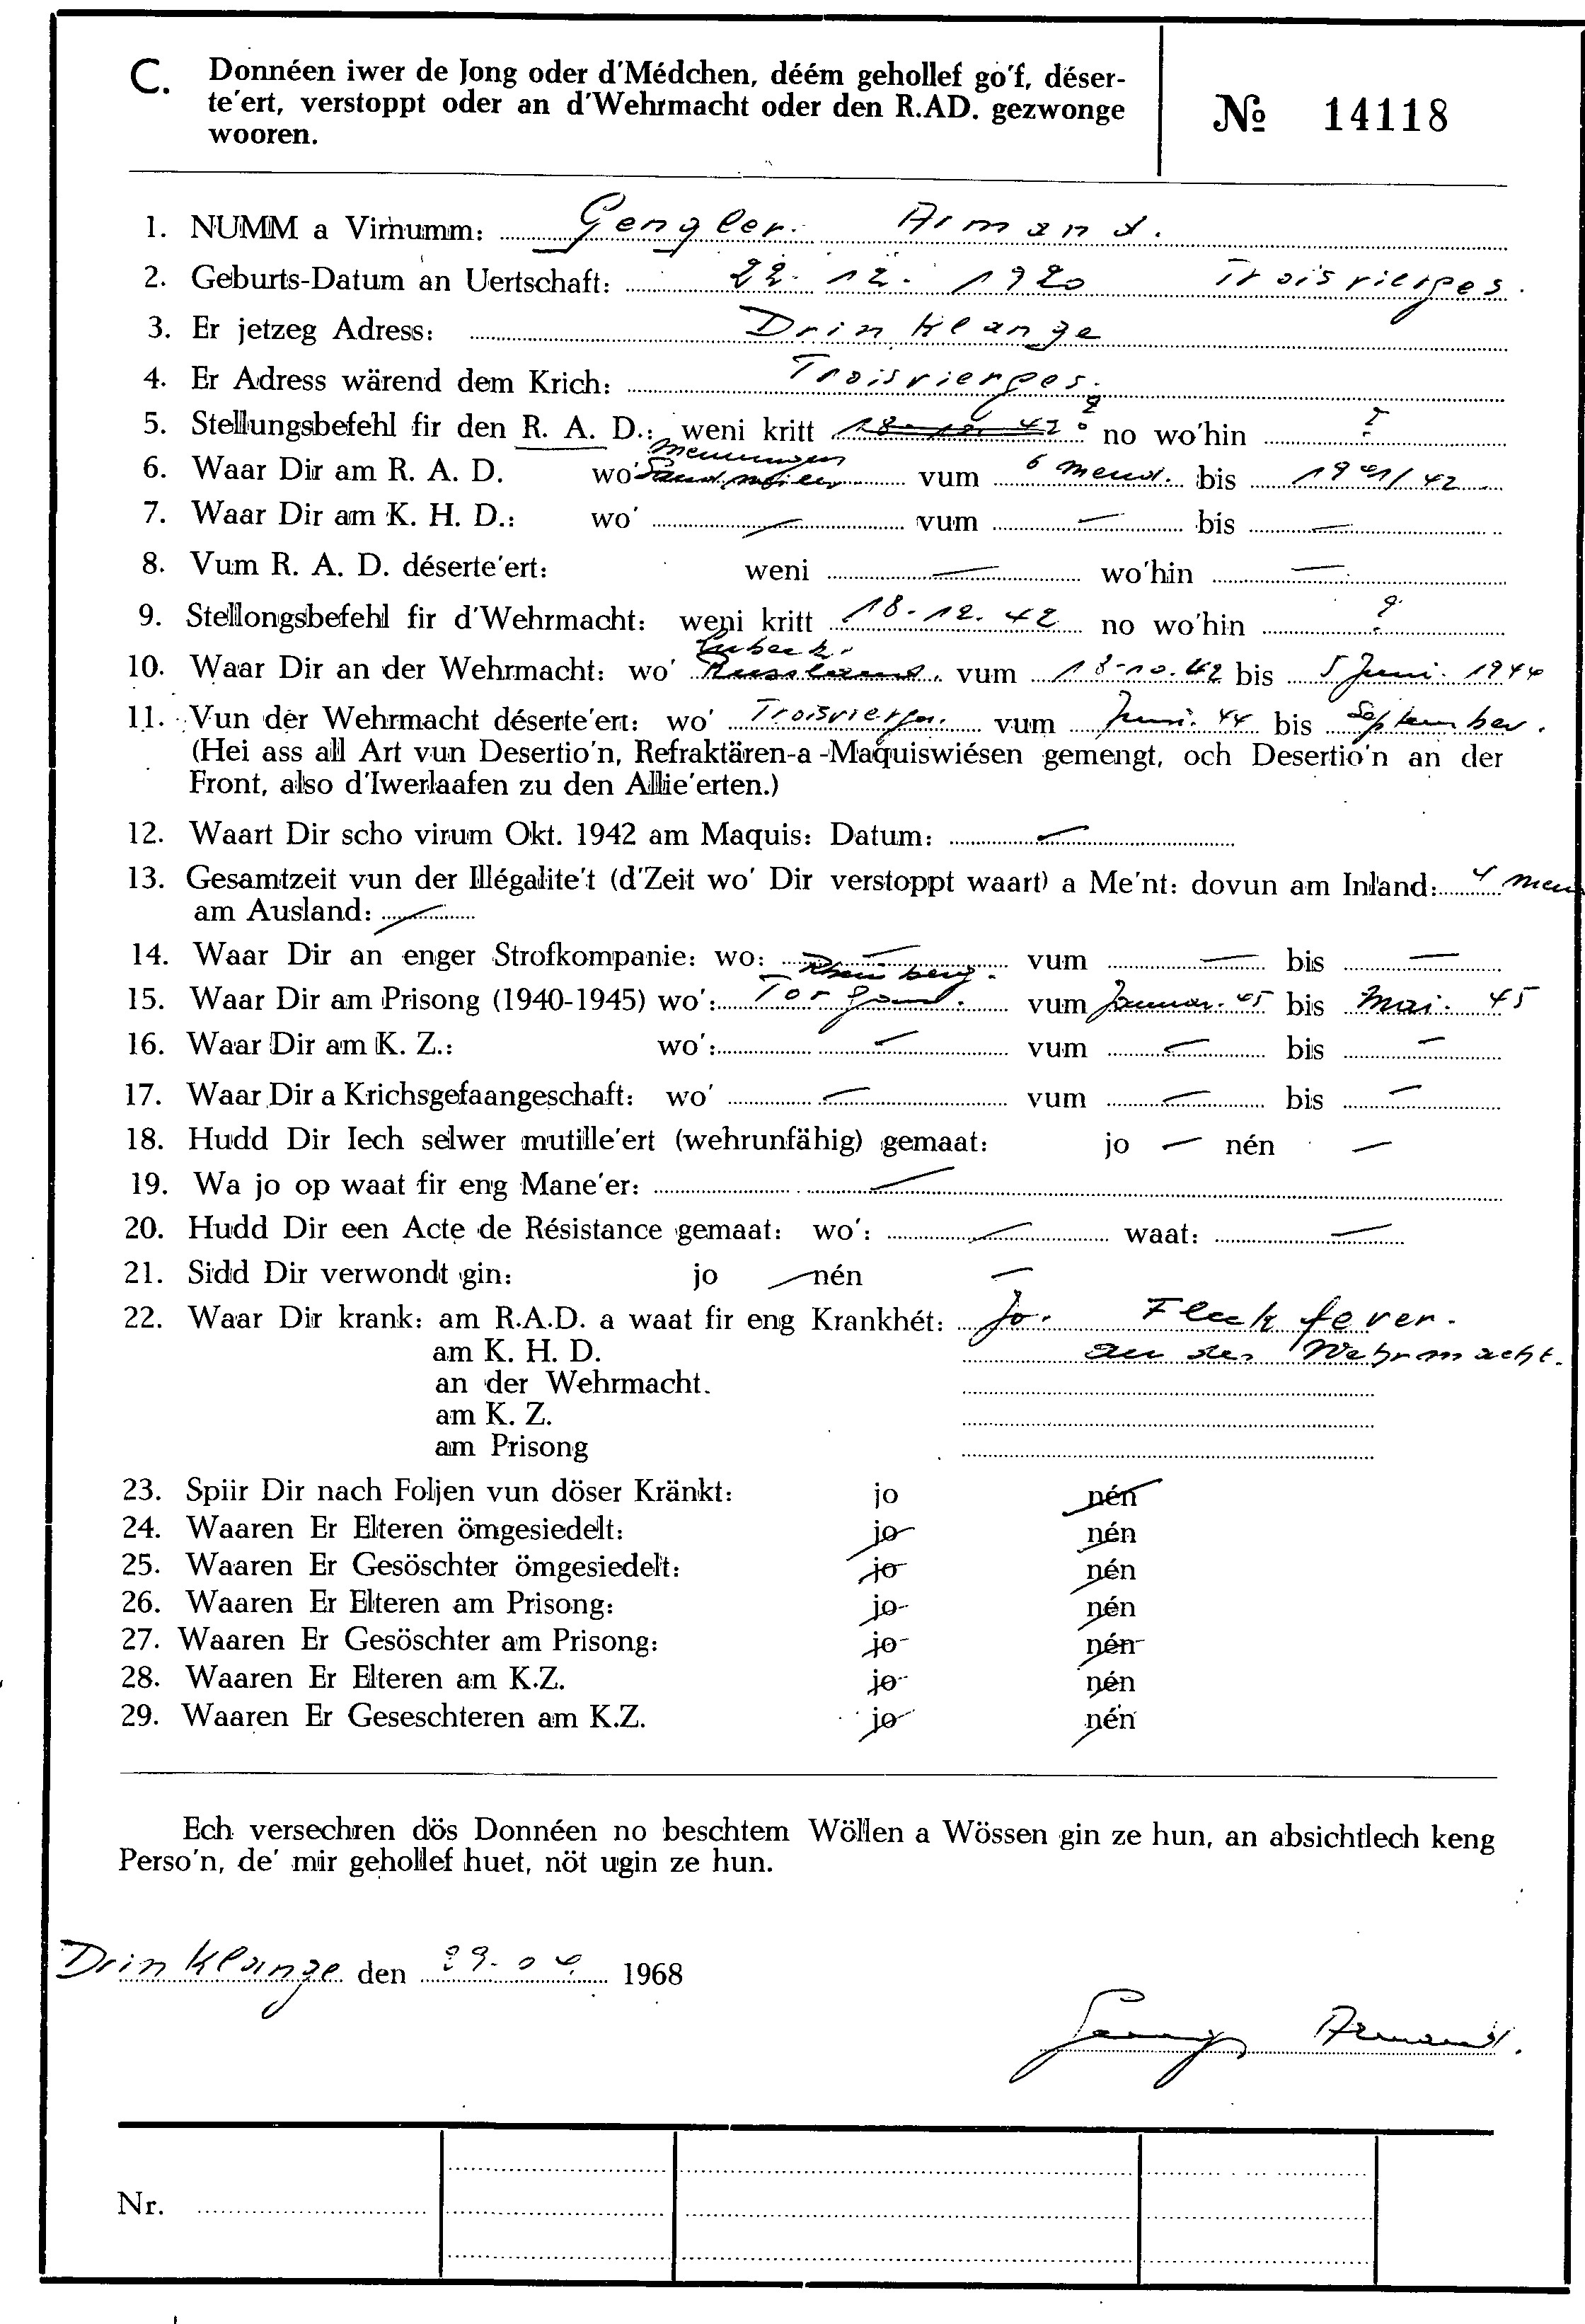 C. Donnéen iwer de Jong oder d'Médchen, déém gehollef go'f, déser-
te'ert, verstoppt oder an d'Wehrmacht oder den R.AD. gezwonge
wooren.
№ 14118
1. NUMM a Virnumm: Gengler. Armand.
2. Geburts-Datum an Uertschaft: 22. 12. 1920 Troisvierges.
3. Er jetzeg Adress: Drinklange
4. Er Adress wärend dem Krich: Troisvierges.
5. Stellungsbefehl fir den R. A. D.: weni kritt 18-10. 42 ? no wo'hin ?
6. Waar Dir am R. A. D. wo' vum 6 bis
7. Waar Dir am K. H. D.: wo' — vum — bis —
8. Vum R. A. D. déserte'ert: weni — wo'hin —
9. Stellongsbefehl fir d'Wehrmacht: weni kritt 18-12. 42 no wo'hin ?
Lubeck.
10. Waar Dir an der Wehrmacht: wo' Russland. vum 18-10.42 bis 5 Juni. 1944
11. Vun der Wehrmacht déserte'ert: wo' Troisvierges. vum Juni. 44 bis September.
(Hei ass all Art vun Desertio'n, Refraktären-a -Maquiswiésen gemengt, och Desertio'n an der
Front, also d'Iwerlaafen zu den Allie'erten.)
12. Waart Dir scho virum Okt. 1942 am Maquis: Datum: —
13. Gesamtzeit vun der Illégalite't (d'Zeit wo' Dir verstoppt waart) a Me'nt: dovun am Inland: 4
am Ausland: —
14. Waar Dir an enger Strofkompanie: wo: — vum — bis —
Rheinberg.
15. Waar Dir am Prisong (1940-1945) wo': Torgau. vum Januar. 45 bis Mai. 45
16. Waar Dir am K. Z.: wo': — vum — bis —
17. Waar Dir a Krichsgefaangeschaft: wo' — vum — bis —
18. Hudd Dir Iech selwer mutille'ert (wehrunfähig) gemaat: jo — nén —
19. Wa jo op waat fir eng Mane'er: —
20. Hudd Dir een Acte de Résistance gemaat: wo': — waat: —
21. Sidd Dir verwondt gin: jo — nén —
22. Waar Dir krank: am R.A.D. a waat fir eng Krankhét: Jo. Fleckfever.
am K. H. D. an der Wehrmacht.
an der Wehrmacht.
am K. Z.
am Prisong
23. Spiir Dir nach Foljen vun döser Kränkt: jo nén
24. Waaren Er Elteren ömgesiedelt: jo nén
25. Waaren Er Gesöschter ömgesiedelt: jo nén
26. Waaren Er Elteren am Prisong: jo nén
27. Waaren Er Gesöschter am Prisong: jo nén
28. Waaren Er Elteren am K.Z. jo nén
29. Waaren Er Geseschteren am K.Z. jo nén
Ech versechren dös Donnéen no beschtem Wöllen a Wössen gin ze hun, an absichtlech keng
Perso'n, de' mir gehollef huet, nöt ugin ze hun.
Drinklange den 29. 04. 1968
Armand.
Nr.